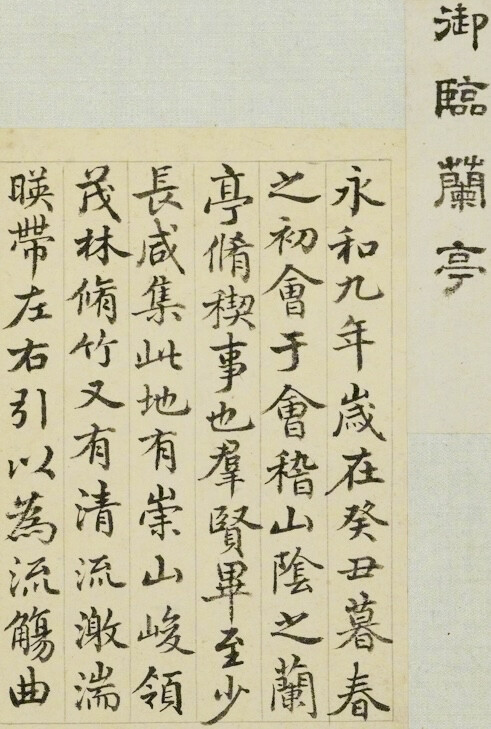 御臨蘭亭
永和九年歲在癸丑暮春
之初會于會稽山陰之蘭
亭脩稧事也羣賢畢至少
長咸集此地有崇山峻領
茂林脩竹又有清流激湍
暎帶左右引以為流觴曲